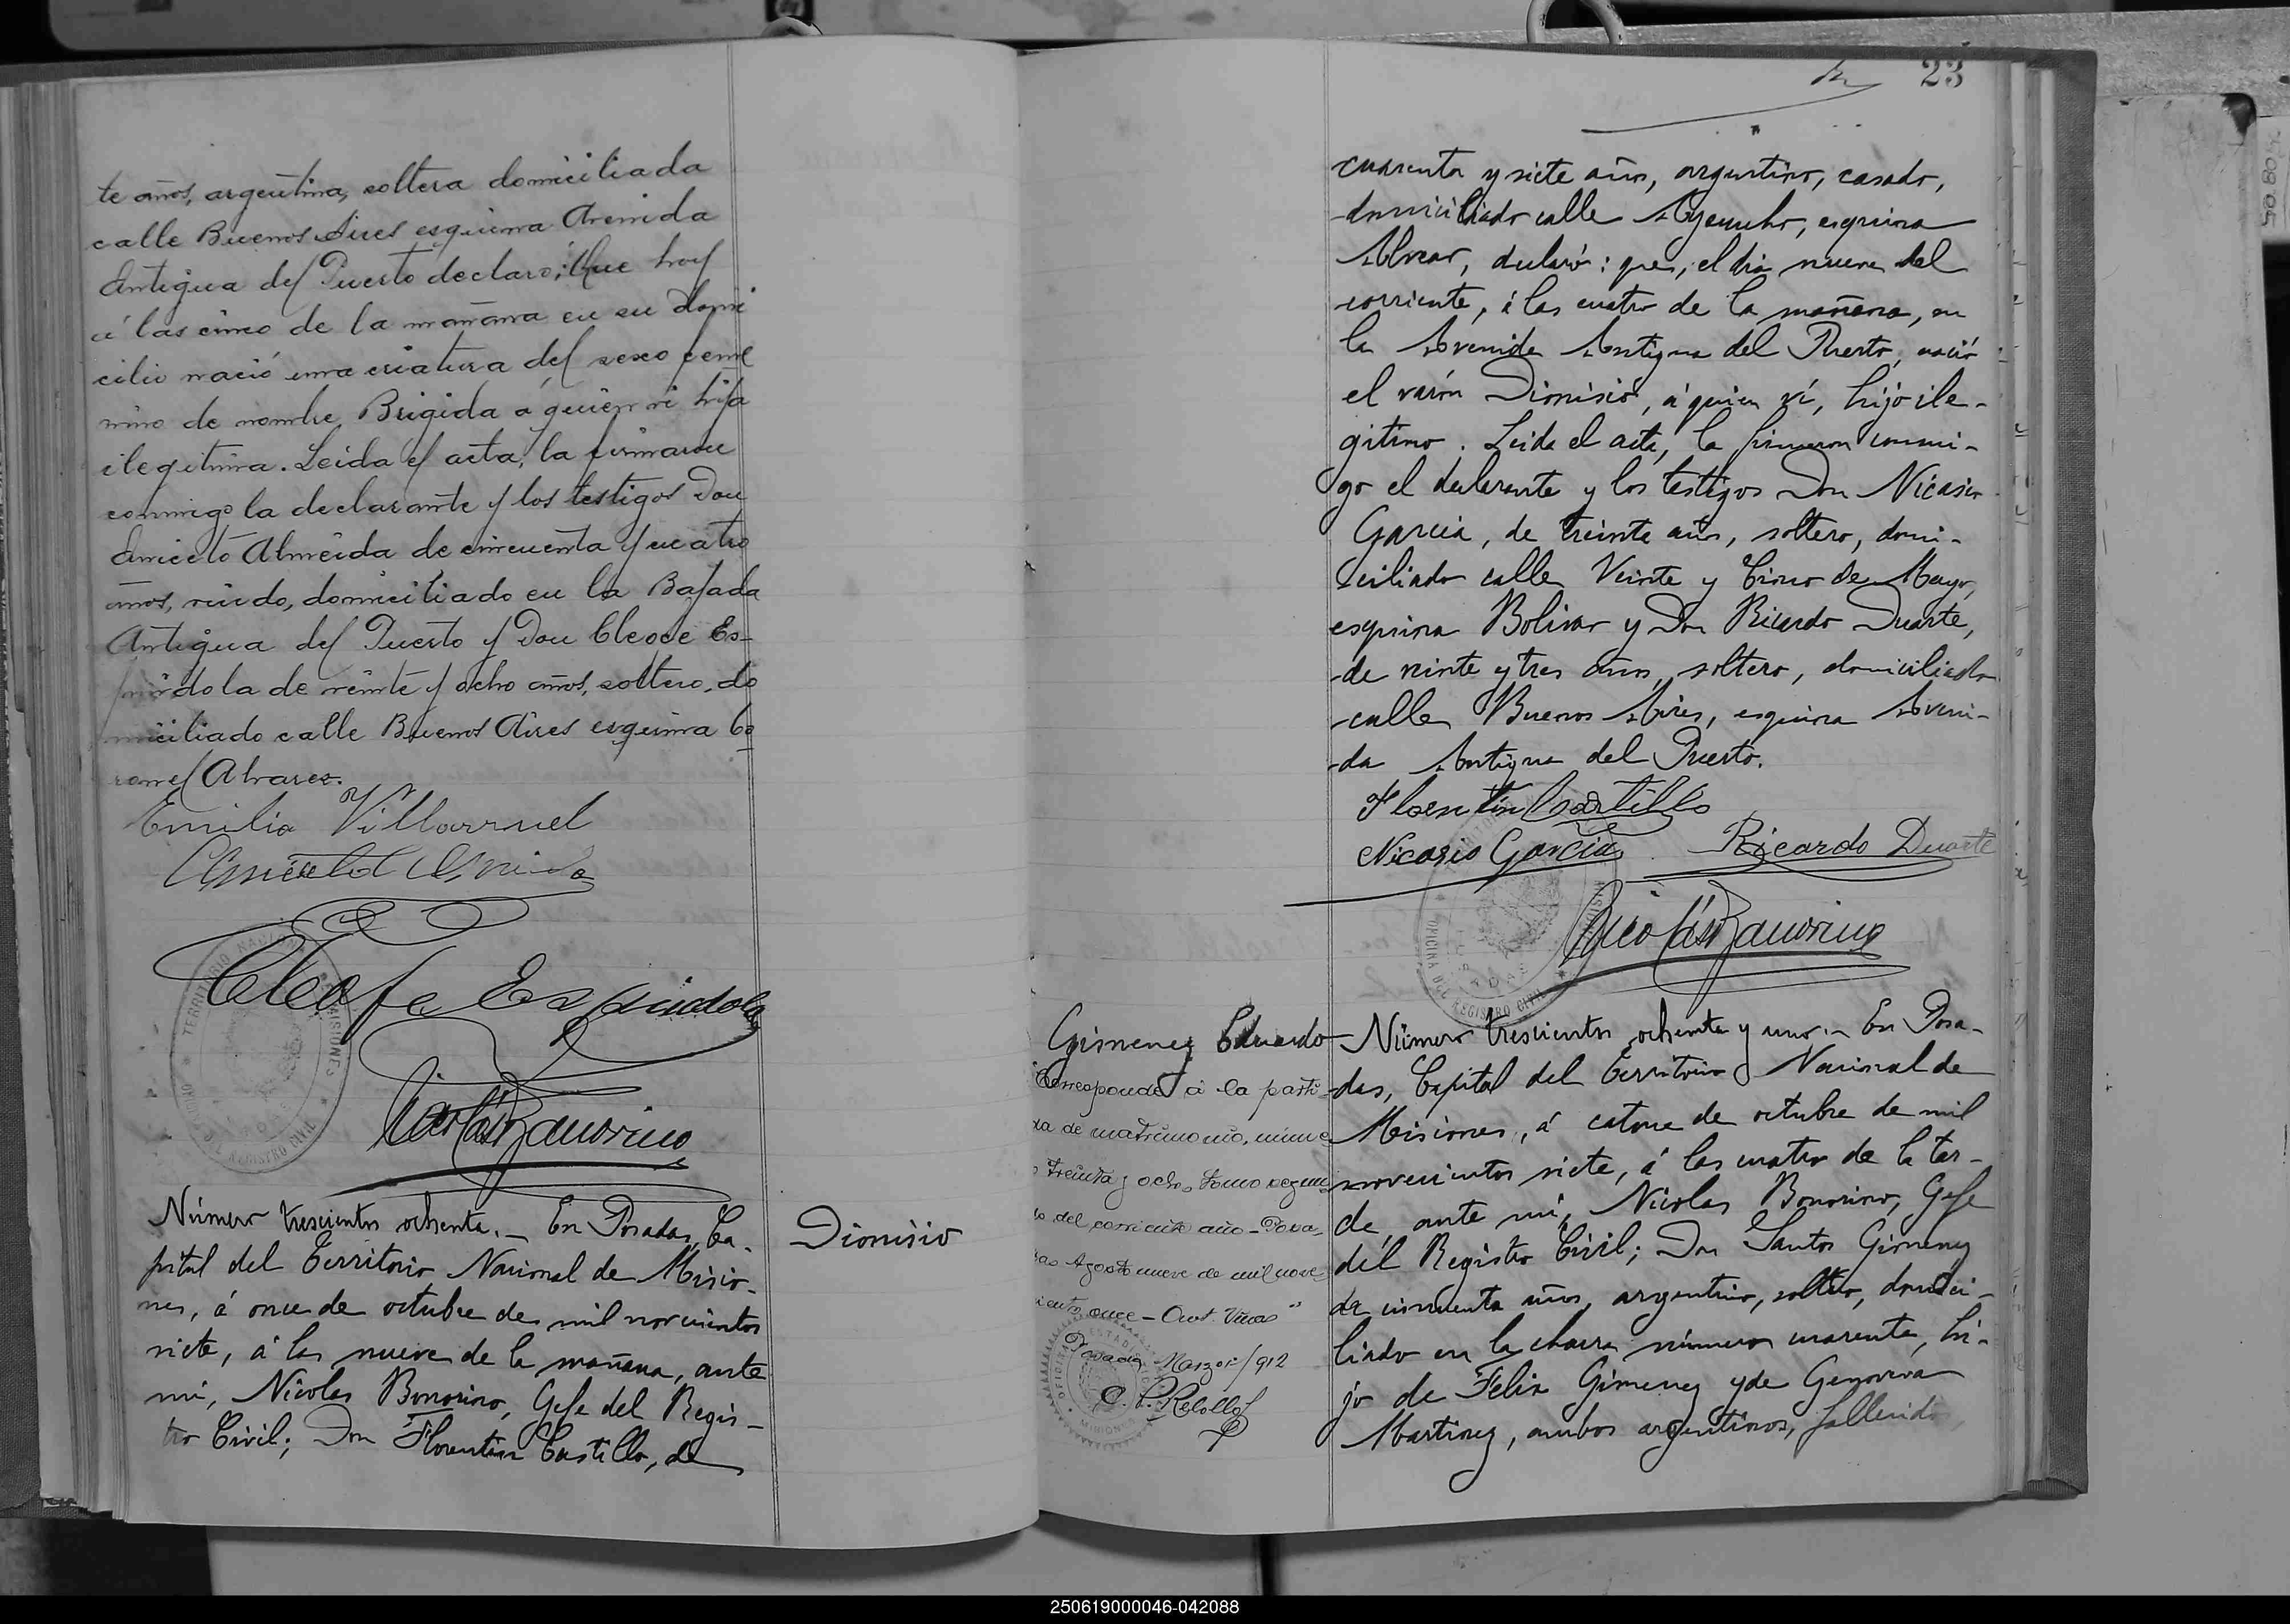 te años, argentina, soltera domiciliada
calle Buenos Aires esquina Avenida
Antigua del Puerto declaró: Que hoy
á las cinco de la mañana en su domi
cilio nació una criatura del sexo feme
nino de nombre Brigida a quien vi hija
ilegitima. Leida el acta, la firmaron
conmigo la declarante y los testigos Don
Aniceto Almeida de cincuenta y cuatro
años, viudo, domiciliado en la Bajada
Antigua del Puerto y Don Cleofe Es-
pindola de veinte y ocho años, soltero, do
miciliado calle Buenos Aires esquina Co
ronel Alvarez.
Emilia Villarruel
Aniceto Almeida
Cleofe Espindola
Nicolás Bonorino
Número trescientos ochenta. — En Posadas, Ca-
pital del Territorio Nacional de Misio-
nes, á once de octubre de mil novecientos
siete, á las nueve de la mañana, ante
mí, Nicolas Bonorino, Gefe del Regis-
tro Civil; Don Florentin Castillo, de
Dionisio
23
cuarenta y siete años, argentino, casado,
domiciliado calle Ayacucho, esquina
Alvear, declaró: que, el dia nueve del
corriente, á las cuatro de la mañana, en
la Avenida Antigua del Puerto, nació
el varón Dionisio, á quien ví, hijo ile-
gitimo. Leida el acta, la firmaron conmi-
go el declarante y los testigos Don Nicasio
Garcia, de treinta años, soltero, domi-
ciliado calle Veinte y Cinco de Mayo,
esquina Bolivar y Don Ricardo Duarte,
de veinte y tres años, soltero, domiciliado
calle Buenos Aires, esquina Aveni-
da Antigua del Puerto.
Florentin Castillo
Nicasio Garcia Ricardo Duarte
Nicolás Bonorino
Gimenez Eduardo
Corresponde á la parti
da de matrimonio, núme
o treinta y ocho, tomo segun
do del corriente año - Posa
das Agosto nueve de mil nove
cientos once -
Posadas Marzo /912
Número trescientos ochenta y uno. — En Posa-
das, Capital del Territorio Nacional de
Misiones, á catorce de octubre de mil
novecientos siete, á las cuatro de la tar-
de, ante mí, Nicolas Bonorino, Gefe
del Registro Civil; Don Santos Gimenez
de cincuenta años, argentino, soltero, domici-
liado en la chacra número cuarenta, hi-
jo de Felix Gimenez y de Genoveva
Martinez, ambos argentinos, fallecidos,
250619000046-042088